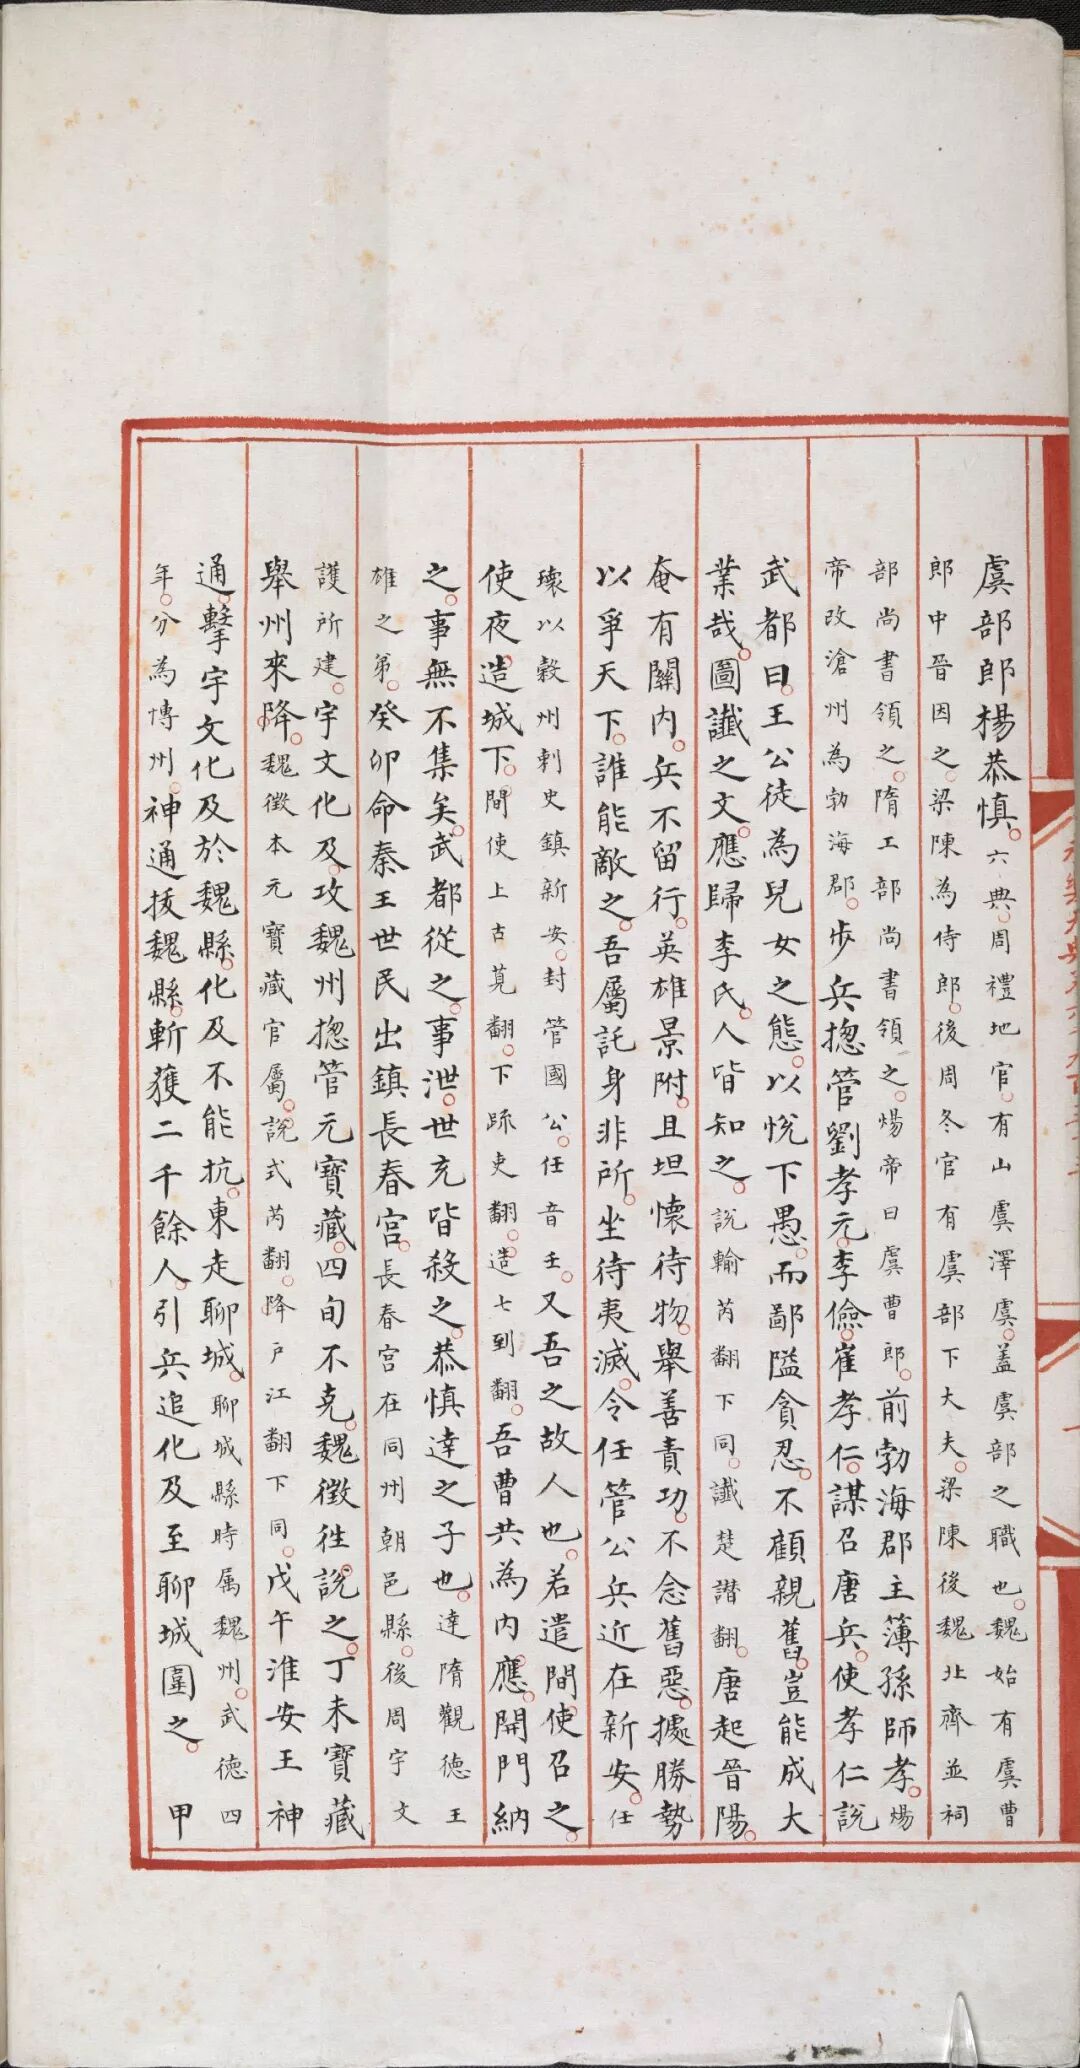 虞部郎楊恭慎。六典。周禮地官。有山虞澤虞。蓋虞部之職也。魏始有虞曹
郎中晉因之。梁陳為侍郎。後周冬官有虞部下大夫。梁陳後魏北齊並祠
部尚書領之。隋工部尚書領之。煬帝曰虞曹郎。前勃海郡主簿孫師孝。煬
帝改滄州為勃海郡。步兵揔管劉孝元。李儉。崔孝仁。謀召唐兵。使孝仁說
武都曰。王公徒為兒女之態。以悅下愚。而鄙隘貪忍。不顧親舊。豈能成大
業哉。圖讖之文。應歸李氏。人皆知之。說輸芮翻下同。讖楚譖翻。唐起晉陽。
奄有關內。兵不留行。英雄景附。且坦懷待物。舉善責功。不念舊惡。據勝勢
以爭天下。誰能敵之。吾屬託身非所。坐待夷滅。令任管公兵近在新安。任
瓌以穀州刺史鎮新安。封管國公。任音壬。又吾之故人也。若遣間。使召之。
使夜造城下。間使上古莧翻。下疏吏翻。造七到翻。吾曹共為內應。開門納
之。事無不集矣。武都從之。事泄。世充皆殺之。恭慎達之子也。達隋觀德王
雄之弟。癸卯命秦王世民出鎮長春宮。長春宮在同州朝邑縣。後周宇文
護所建。宇文化及。攻魏州揔管元寶藏。四旬不克。魏徵往說之。丁未寶藏
舉州來降。魏徵本元寶藏官屬。說式芮翻。降戶江翻下同。戊午淮安王神
通。擊宇文化及於魏縣。化及不能抗。東走聊城。聊城縣時属魏州。武德四
年。分為博州。神通拔魏縣。斬獲二千餘人。引兵追化及至聊城圍之。甲